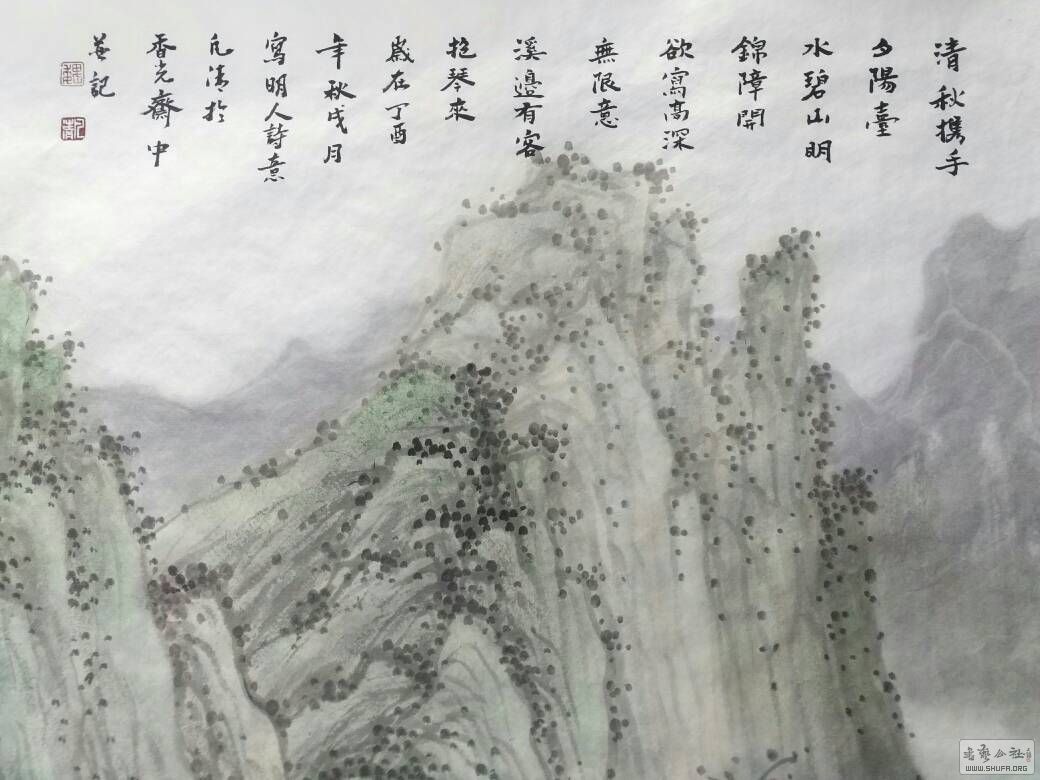 清秋攜手
夕陽臺
水碧山明
錦障開
欲寫高深
無限意
溪邊有客
抱琴來
歲在丁酉
年秋戌月
寫明人詩意
凡清於
香光齋中
並記
WWW.SHUFA.ORG